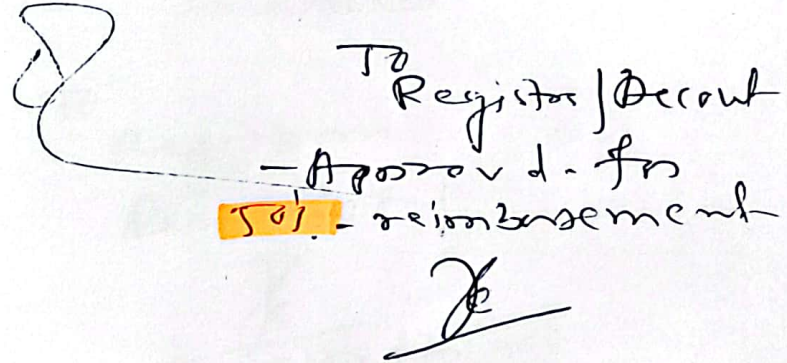 To
Registrar/Account
- Approved. for
50%. - reimbursement